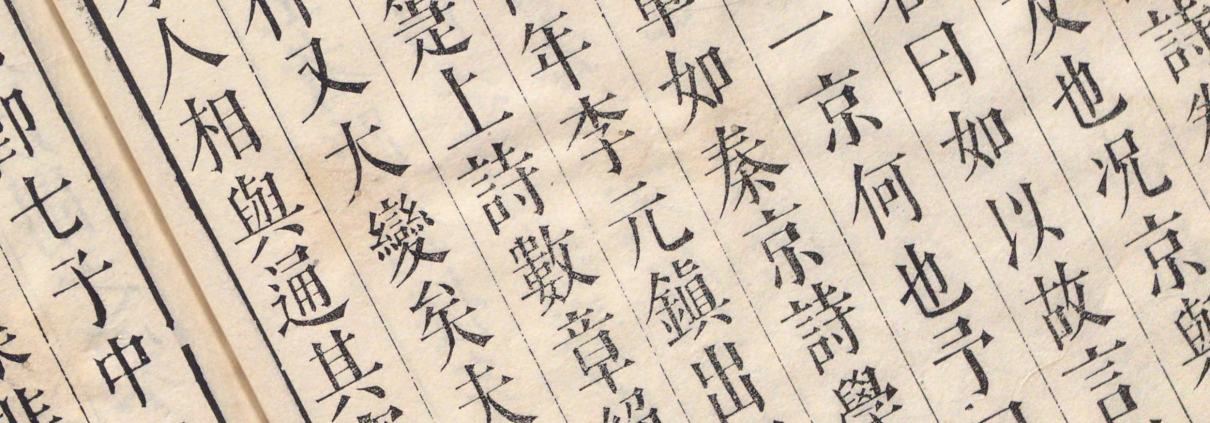 詩
及也况京與
曰如以故言
一京何也予
如秦京詩學
年李元鎮出
上詩數章
又大變矣夫
人相與逼其
卽七子中